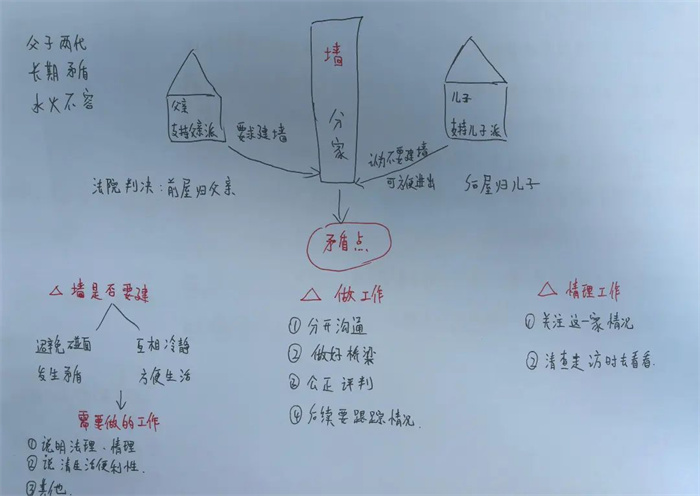 父子两代
长期矛盾
水火不容
父亲
支持父亲派
要求建墙
墙
分
家
儿子
支持儿子派
认为不要建墙
可方便进出
法院判决：前屋归父亲
后屋归儿子
矛盾点
△ 墙是否要建
避免碰面
发生矛盾
互相冷静
方便生活
需要做的工作
①说明法理、情理
②说清生活便利性.
③其他.
△ 做工作
①分开沟通
② 做好桥梁
③公正评判
④后续要跟踪情况.
△ 情理工作
①关注这一家情况
②清查走访时去看看.